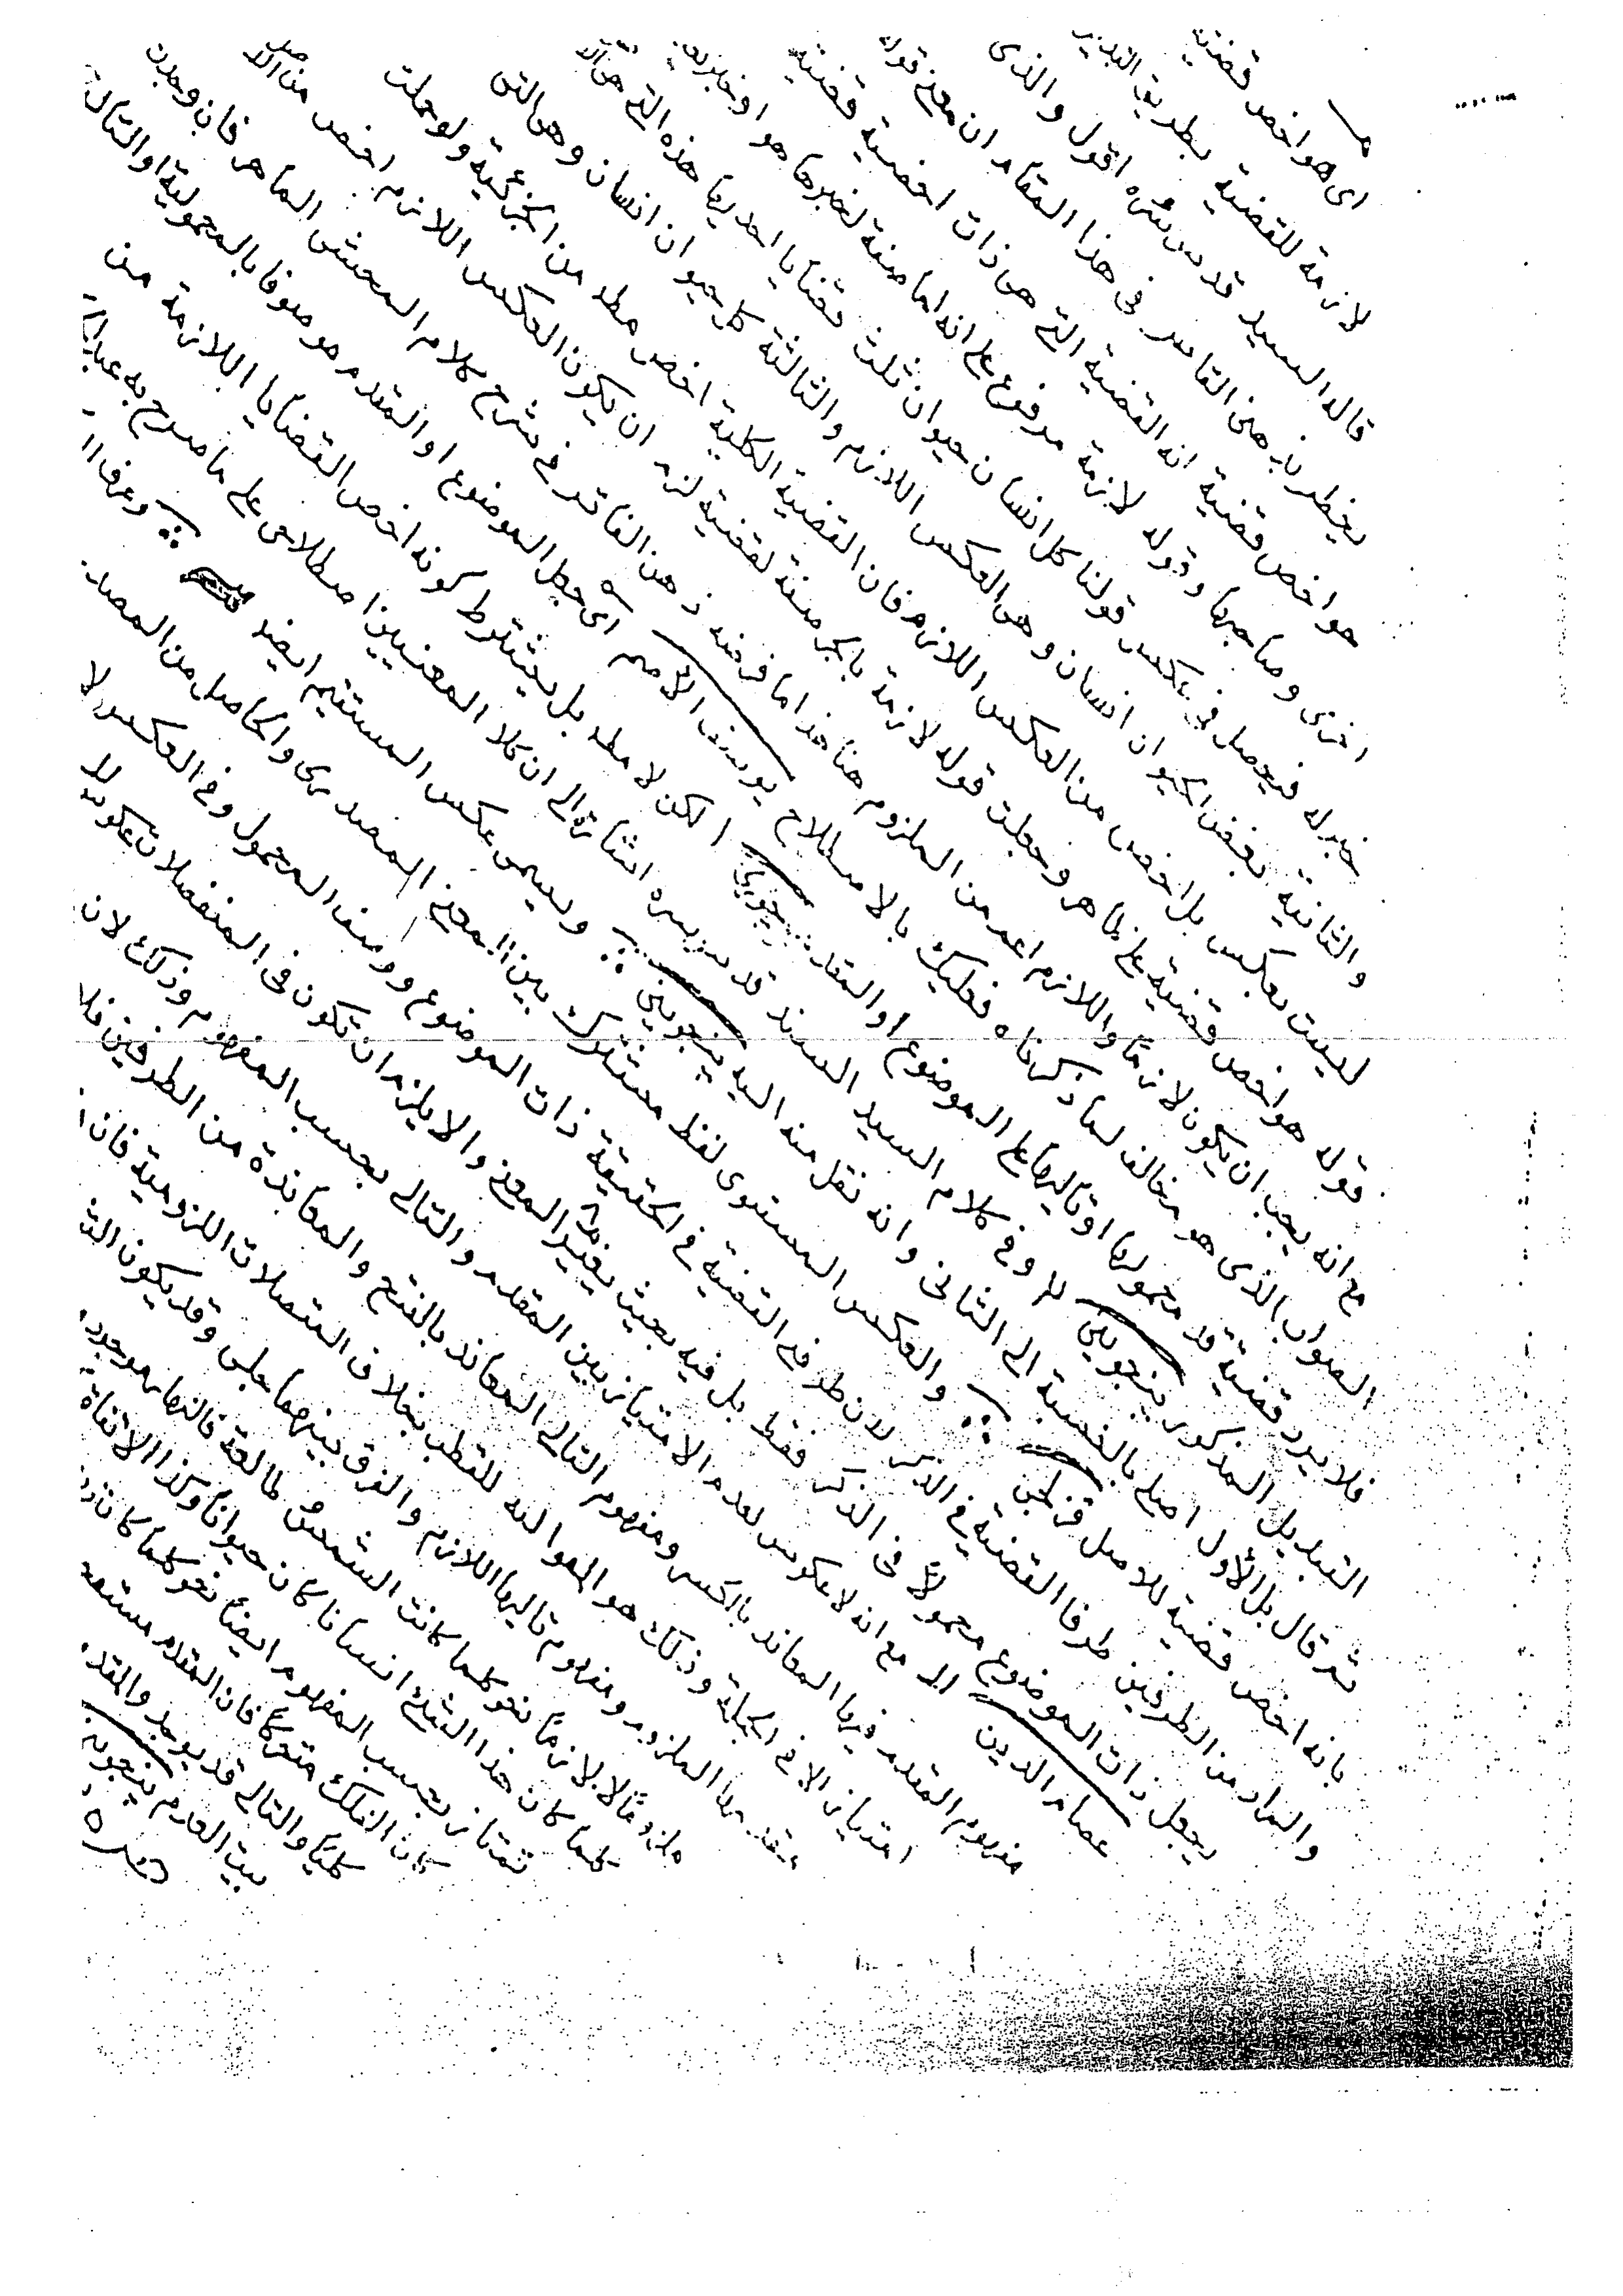 اى هو اخص قضية
لازمة للقضية بطريق
قاله السيد قدس سره اقول والذى
يخطر بذهنى القاصر فى هذا المقام ان معنى قوله
هو اخص قضية انه القضية التى هى ذات اخصية قضية
اخرى وصاحبها وقوله لازمة مرفوع على انها صفة لخبرها هو او خبر بعد
خبر له فيحصل فى عكس قولنا كل انسان حيوان ثلث قضايا احديها هذه التى هى
والثانية بعض الحيوان انسان وهى العكس اللازم والثالثة كل حيوان انسان وهى التى
ليست بعكس بل اخص من العكس اللازم فان القضية الكلية اخص مط من الجزئية ولو جعلت
قوله هو اخص قضية على ظاهر وجعلت قوله لازمة بالجر صفة لقضية لزم ان يكون العكس اللازم اخص من الاصل
مع انه يجب ان يكون لازما واللازم اعم من الملزوم هذا ما فرضه ذهن الفاتر فى شرح كلام المحشى الماهر فان وجدت
الصواب الذى هو مخالف لما ذكرناه فعليك بالاصطلاح يوسف الاصم اى جعل الموضوع او المقدم موصوفا بالمحمولية او التالى
فلا يرد قضية قد محمولها او تاليها على الموضوع او المقدم ينجوينى لكن لا مط بل يشترط كونه اخص القضايا اللازمة من
التبديل المذكور ينجوينى وفى كلام السيد السند قدس سره اشارة الى ان كلا المعنيين اصطلاحى على ما صرح به
ثم قال بل الأول اصلى بالنسبة الى الثانى وانه نقل منه اليه ينجوينى ويسمى عكس المستقيم ايضا وعرف
بانه اخص قضية للاصل قزلجى والعكس المستوى لفظ مشترك بين المعنى المصدرى والحاصل من المصدر
والمراد من الطرفين طرفا القضية فى الذكر لان طرفى القضية فى الحقيقة ذات الموضوع ووصف المحمول وفى العكس لا
يجعل ذات الموضوع محمولا فى الذكر فقط بل فيه بحيث يغير المعنى والا يلزم ان تكون فى المنفصلات
عصام الدين مع انه لا عكوس لعدم الامتياز بين المقدم والتالى بحسب المفهوم وذلك لان
مفهوم المقدم فيها المعاند بالكسر ومفهوم التالى المعاند بالفتح والمعاندة من الطرفين فلا
امتياز الا فى الجملة وذلك هو للقطب بخلاف المتصلات اللزومية فان
مقدمها الملزوم ومفهوم تاليها اللازم والفرق بينهما جلى وقد يكون
ملزوما لا لازما نحو كلما كانت الشمس طالعة فالنهار موجود
كلما كان هذا الشئ انسانا كان حيوانا وكذا
تمتاز بحسب المفهوم ايضا نحو كلما
كان الفلك متحركا فان المقدم
كليا والتالى قد يوجد
ينجوينى